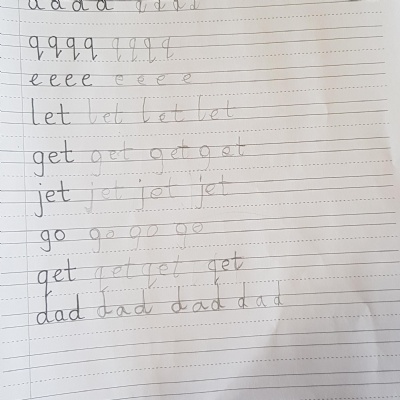 a a a a a a a a
q q q q q q q q
e e e e e e e e
let let let let
get get get get
jet jet jet jet
go go go go
get get get get
dad dad dad dad